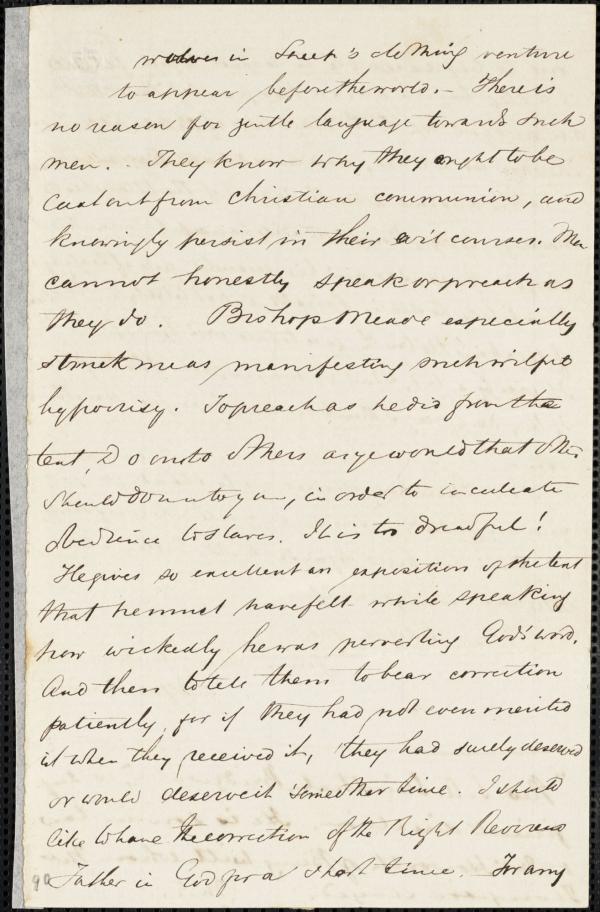 wolves in Sheep's clothing venture
to appear before the world. - There is
no reason for gentle language towards such
men. - They know why they ought to be
Cast out from Christian communion, and
knowingly persist in their evil courses. Men
cannot honestly speak or preach as
they do. Bishop Meade especially
struck me as manifesting such wilful
hypocrisy. To preach as he did from the
text, Do unto others as ye would that others
should do unto you, in order to inculcate
obedience to slaves. It is too dreadful!
He gives so excellent an exposition of the text
that he must have felt while speaking
how wickedly he was perverting God's word.
And then to tell them to bear correction
patiently, for if they had not even merited
it when they received it, they had surely deserved
or would deserve it some other time. I should
like to have the correction of the Right Reverend
Father in God for a short time. For any